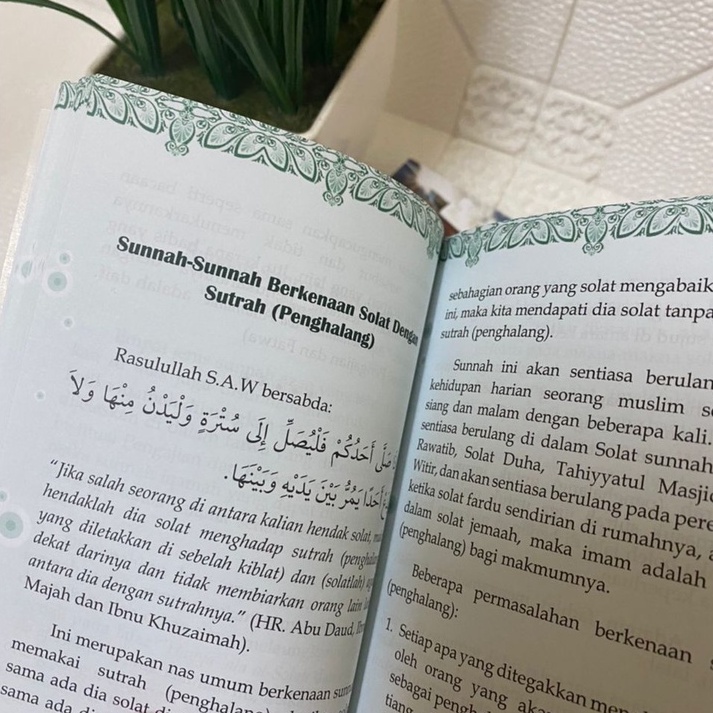 Sunnah-Sunnah Berkenaan Solat Dengan
Sutrah (Penghalang)
Rasulullah S.A.W bersabda:
صَلَّى أَحَدُكُمْ فَلْيُصَلِّ إِلَى سُتْرَةٍ وَلْيَدْنُ مِنْهَا وَلاَ
أَحَدًا يَمُرُّ بَيْنَ يَدَيْهِ وَبَيْنَهَا.
"Jika salah seorang di antara kalian hendak solat,
hendaklah dia solat menghadap sutrah
yang diletakkan di sebelah kiblat) dan (solatlah)
dekat darinya dan tidak membiarkan orang lain
antara dia dengan sutrahnya." (HR. Abu Daud,
Majah dan Ibnu Khuzaimah).
Ini merupakan nas umum berkenaan
memakai sutrah
sama ada dia solat
sama ada
sebahagian orang yang solat mengabaik
ini, maka kita mendapati dia solat tanpa
sutrah (penghalang).
Sunnah ini akan sentiasa berulan
kehidupan harian seorang muslim
siang dan malam dengan beberapa kali.
sentiasa berulang di dalam Solat sunnah
Rawatib, Solat Duha, Tahiyyatul Masji
Witir, dan akan sentiasa berulang pada
ketika solat fardu sendirian di rumahnya,
dalam solat jemaah, maka imam adalah
(penghalang) bagi makmumnya.
Beberapa permasalahan berkenaan
(penghalang):
1. Setiap apa yang ditegakkan
oleh orang yang
sebagai
tiang